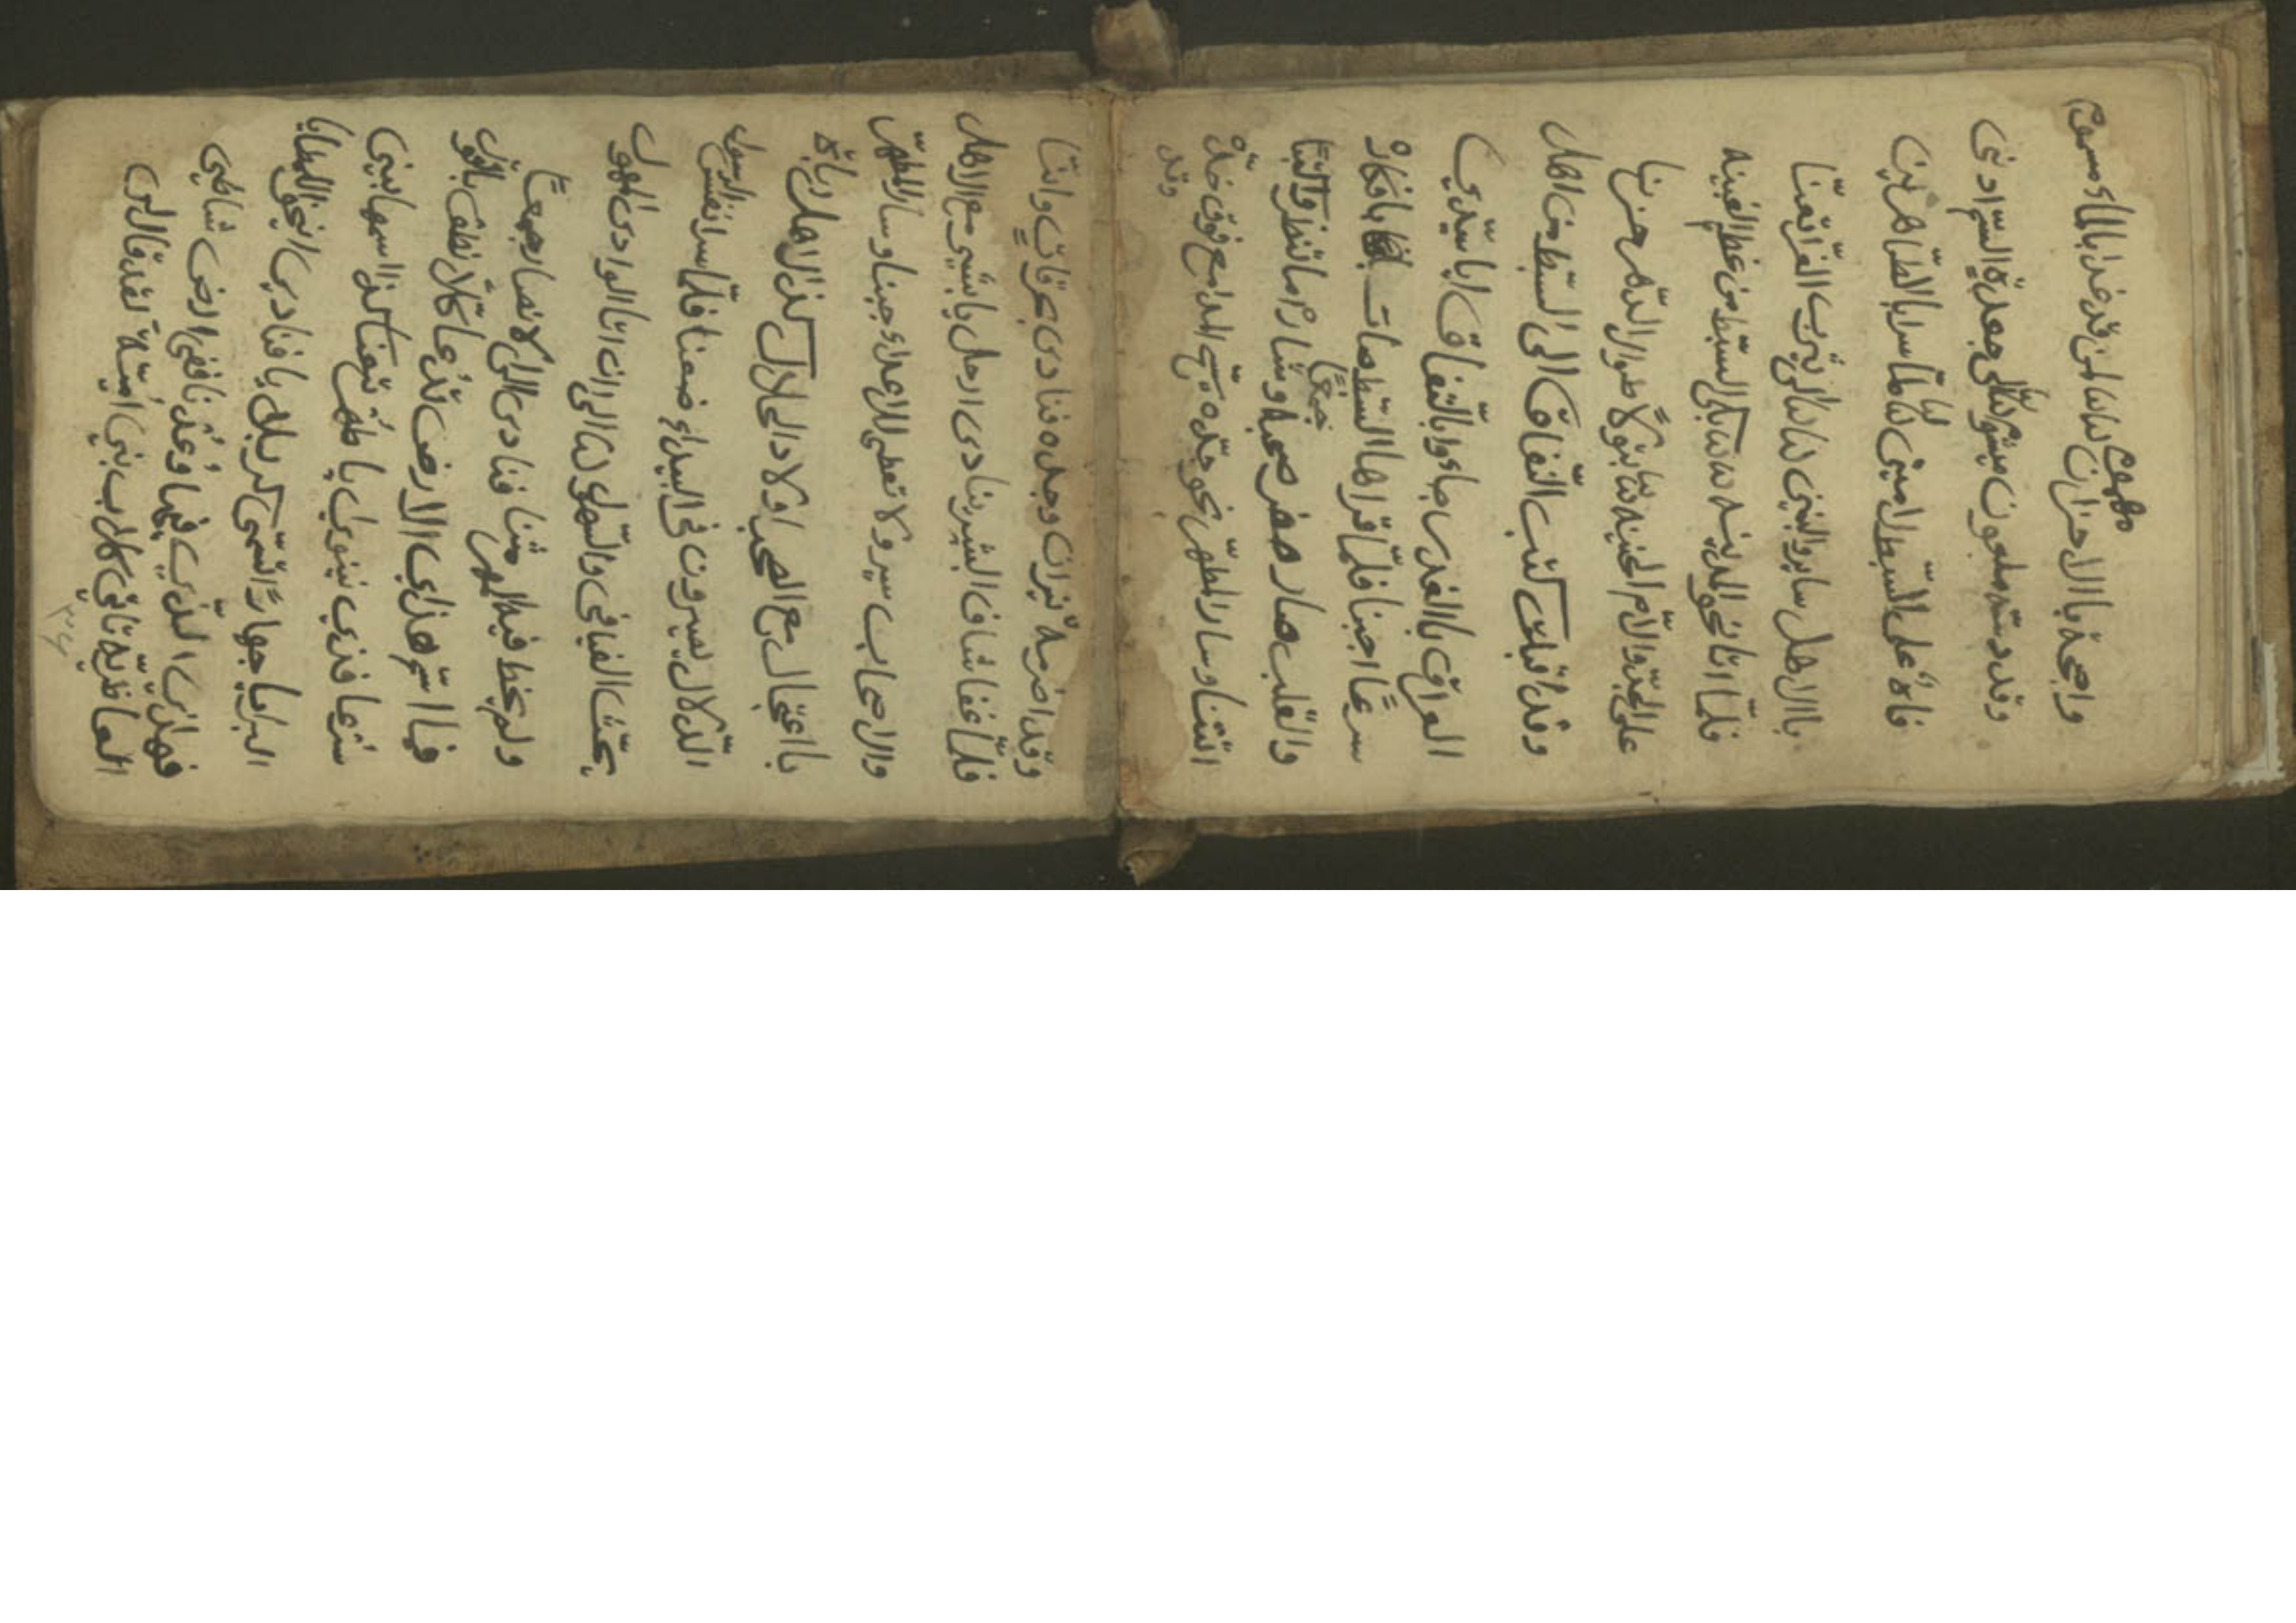 واضجة باالاحزان ننا لمن قد غدا بالماء مسموم
مهموم
وقد دسته ملعون ميشوم الى جعدة السم ادنى
فاه على السبط الامين ننا لما سرا بالطاهرين
باالاهل ساير والبنين ننا الى يثرب الغر اتعنا
فلما اتا نحو المدينه ننا بكى السبط من عظم الغبينه
على الجد والام الحنينه ننا بنوحا طوال الدهر حزنا
وقد اقبلت كتب النفاق الى السبط من اهل
العراق باالغدر جاءوا باالنفاق ايا سيدي
سرعا اجبنا فلما قراها السبط صات بافكار
جميعا
والقلب صار صفر صحبه وشار ما تنظر كتبنا
اتتنا وسار المطهر نحو جده يسح المدامع فوق خده
وقد
وقد اضرمه نيران وجده فنادى بحرقات وانا
فلما غفا شاف البشير ينادى ارحل يا شبير مع الاهل
والاصحاب سير ولا تعطي للاعداء جبنا وسار المطهر
بااعجال مع الصحب اولاد الحلال كذا الاهل ربات
الدلال يسيرون في البيداء ضعنا فلما سرا نفس الرسول
بحث الفيافي والسهول ننا الى ان اتا الوادى المهول
ولم يخط فيه المهر مثنا فنادى الى الانصار جمعا
فما اسم هذي الارض تدعا كلا نطق بالقول
سرعا فذي نينوى يا طهر تعنا كذا اسمها بين
البرايا جهارا تسمى كربلا يا فنادى انيخو المطايا
فهذي الذي فيها وعدنا ففي ارض شاطي
تاتي كلاب بني امية لقد قال لي